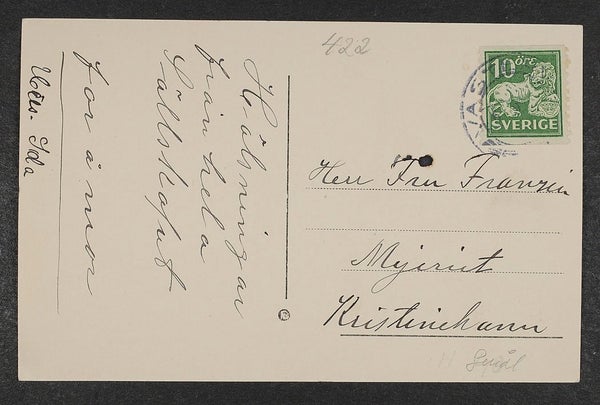 422
10 ÖRE
SVERIGE
Hälsningar
från hela
Sällskapet
för å mor
Ida
Herr Fru Franzén
Kristinehamn